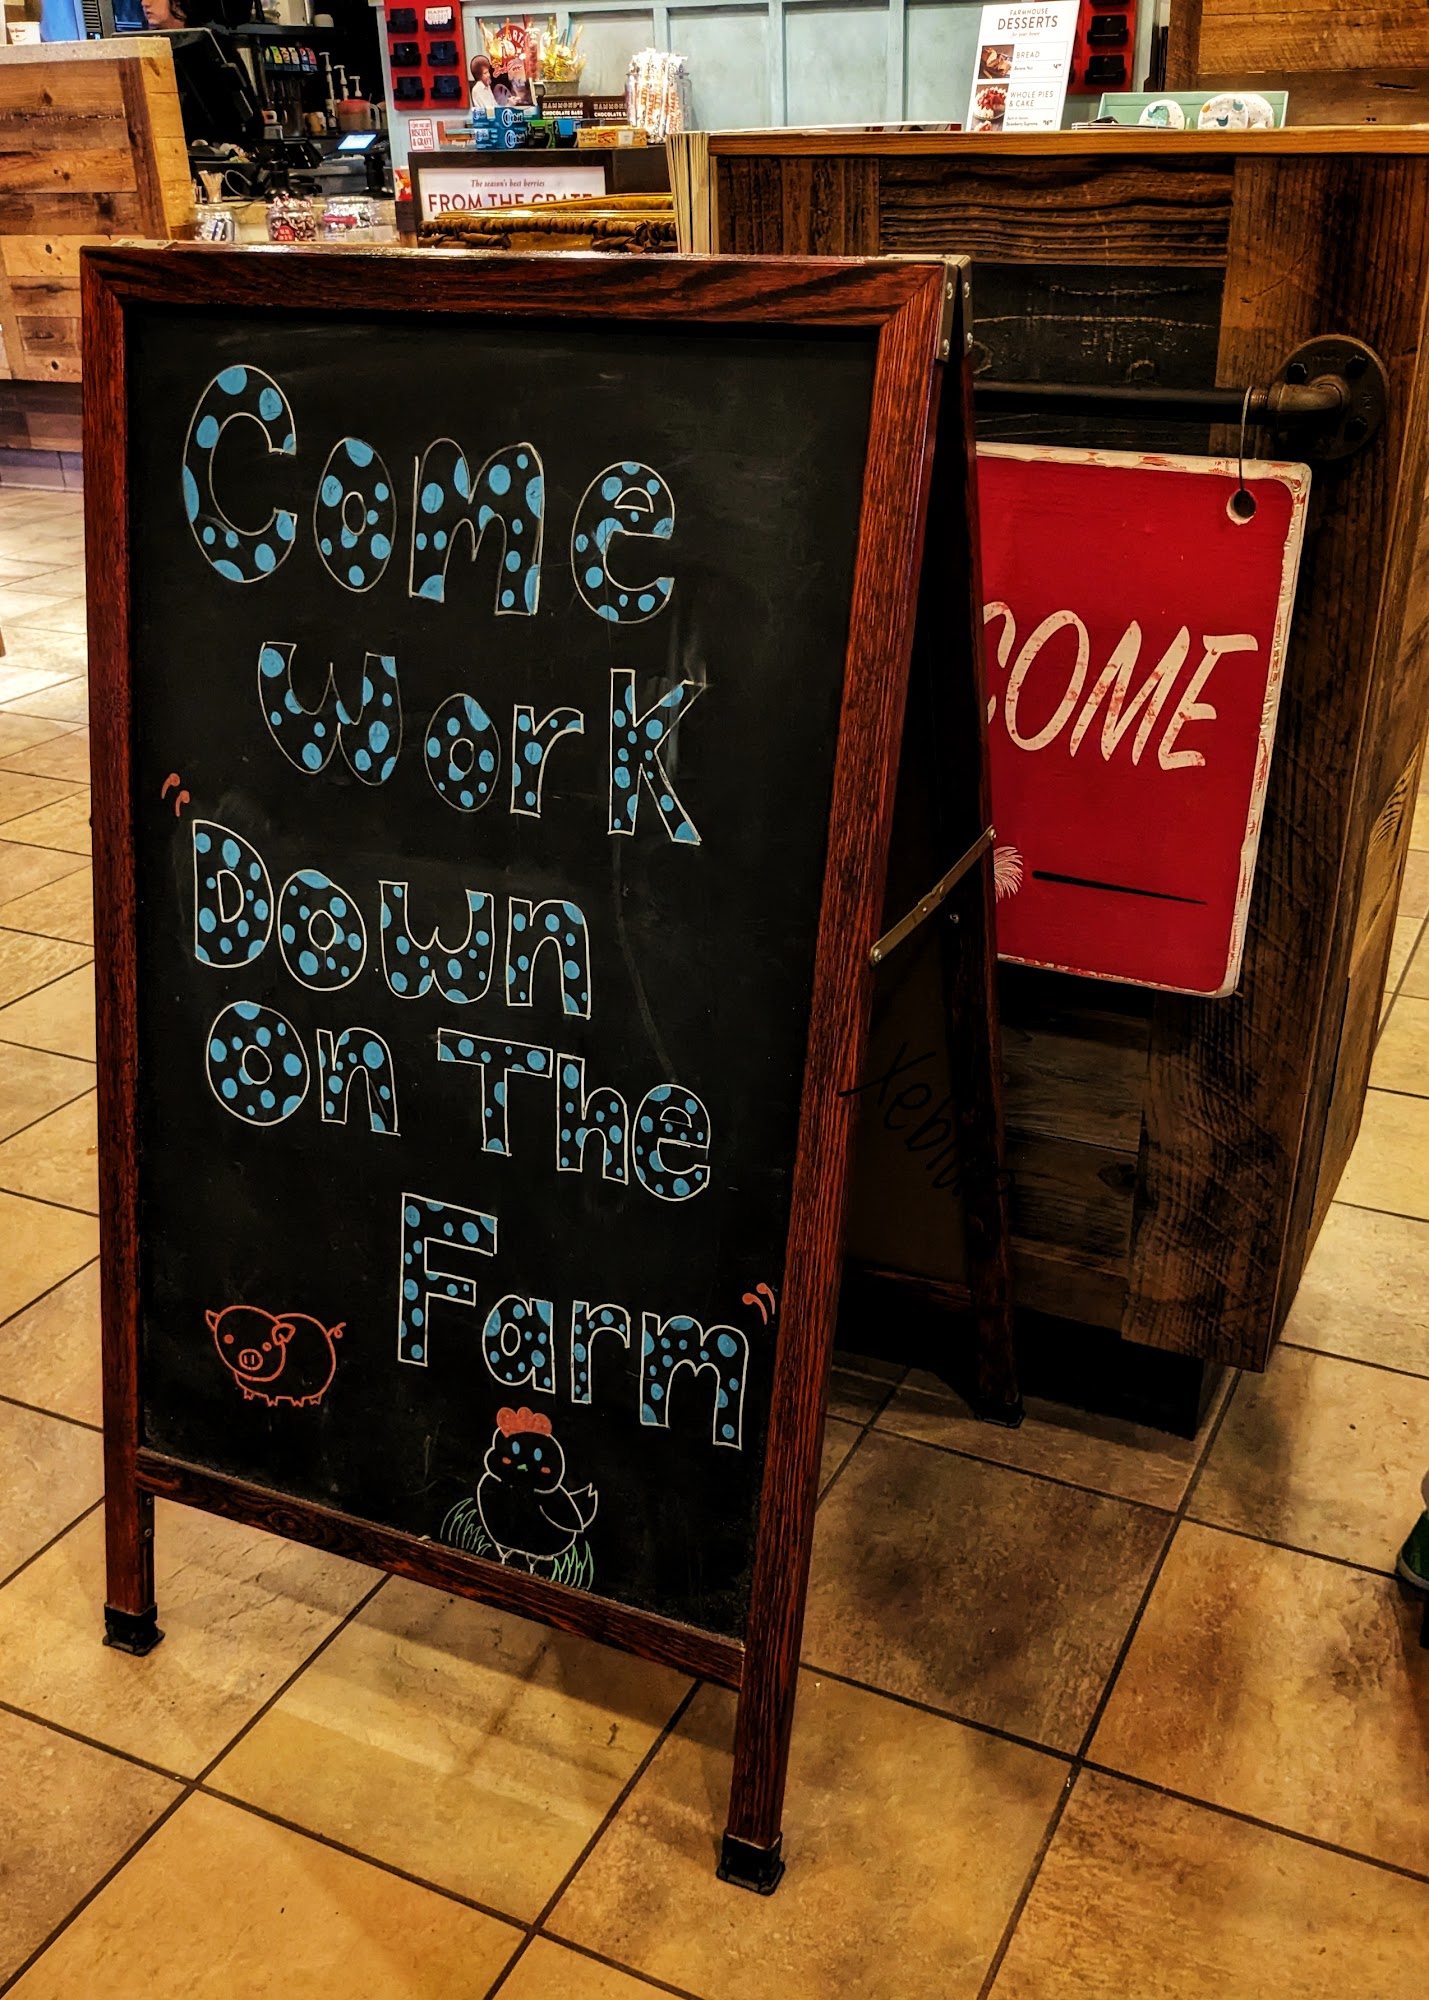 FARMHOUSE
DESSERTS
BREAD
WHOLE PIES
& CAKE
HAMMOND'S
CHOCOLATE BARS
BISCUITS
& GRAVY
The season's best berries
FROM THE CRATE
Come
Work
"Down
On The
Farm"
COME